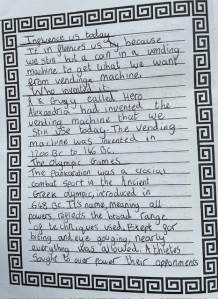 Influence us today
It influences us by because
we still put a coin in a vending
machine to get what we want
from vending machine.
Who invented it
A Greguy called Hero
Alexandria had invented the
vending machine that we
still use today. The vending
machine was invented in
1200 BC to 146 BC.
The Olympic Games
The Pankration was a
combat sport in the Ancient
Greek olympic, introduced in
648 BC. It's name, meaning all
powers, reflects the broad range
of techniques used. Except for
biting and eye gouging, nearly
everything was allowed. Athletes
sought to over power their opponents